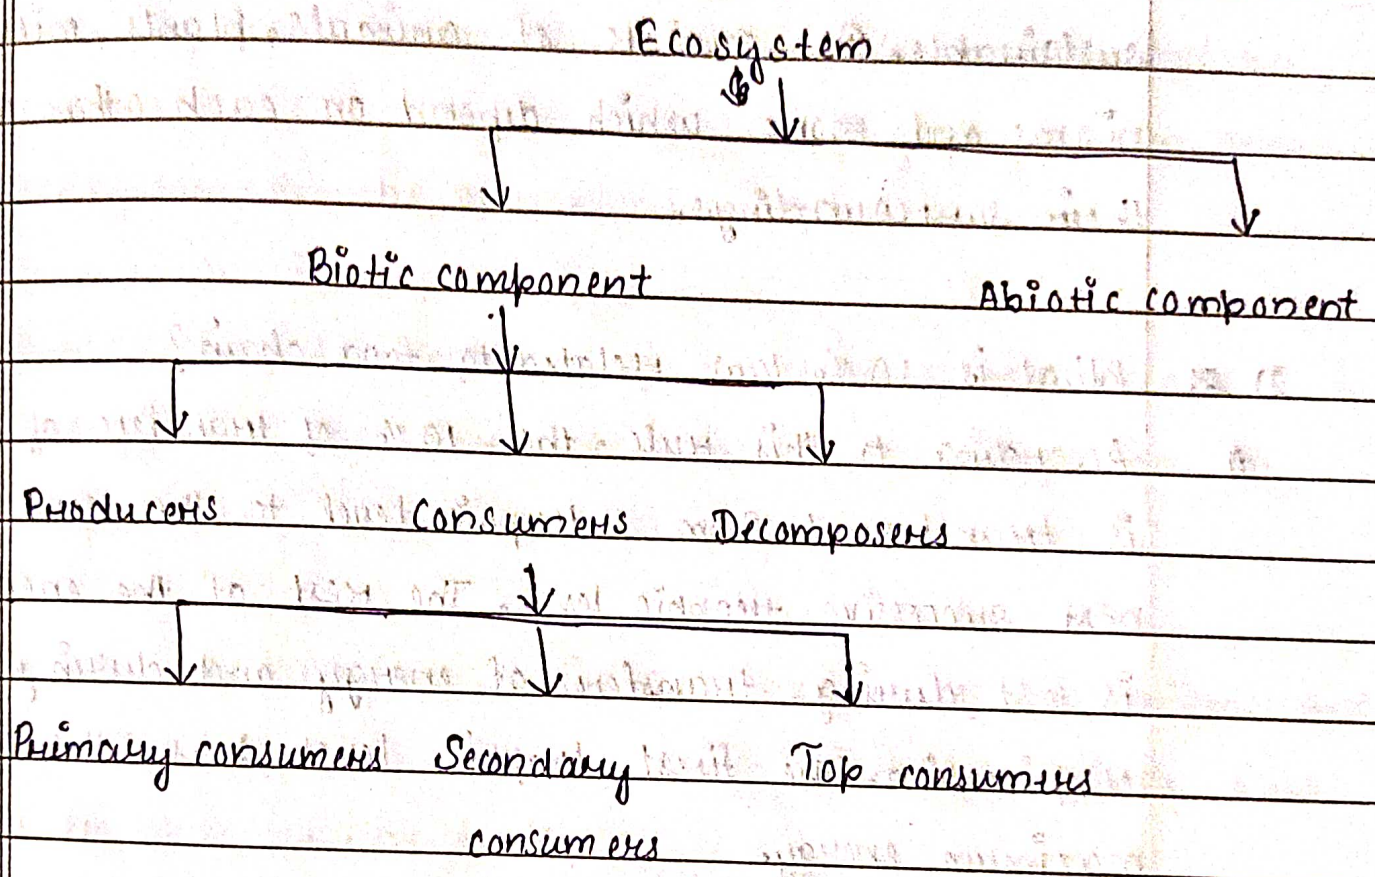 Ecosystem
Biotic component
Abiotic component
Producers Consumers Decomposers
Primary consumers Secondary Top consumers
consumers